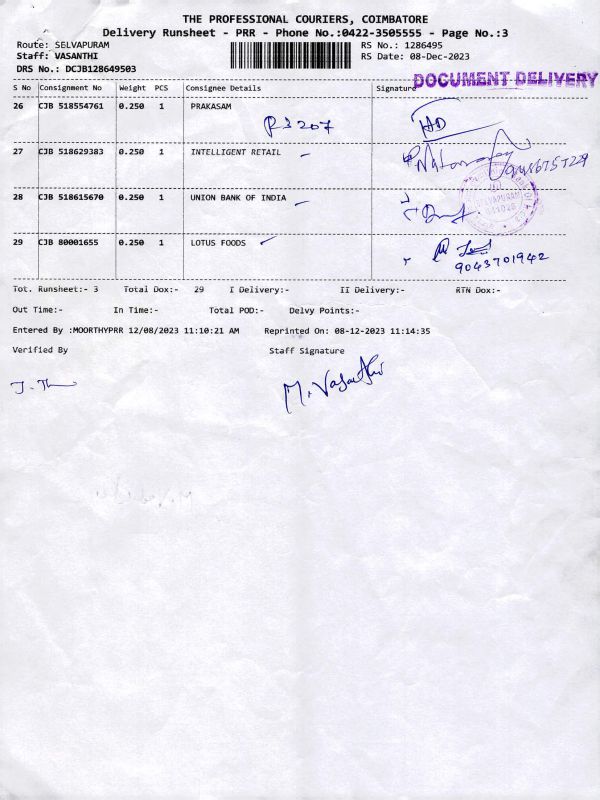 THE PROFESSIONAL COURIERS, COIMBATORE
Delivery Runsheet - PRR - Phone No.:0422-3505555 - Page No.:3
Route: SELVAPURAM RS No.: 1286495
Staff: VASANTHI RS Date: 08-Dec-2023
DRS No.: DCJB128649503
DOCUMENT DELIVERY
S No Consignment No Weight PCS Consignee Details Signature
26 CJB 518554761 0.250 1 PRAKASAM
27 CJB 518629383 0.250 1 INTELLIGENT RETAIL
28 CJB 518615670 0.250 1 UNION BANK OF INDIA
SELVAPURAM
29 CJB 80001655 0.250 1 LOTUS FOODS
9043701942
Tot. Runsheet:- 3 Total Dox:- 29 I Delivery:- II Delivery:- RTN Dox:-
Out Time:- In Time:- Total POD:- Delvy Points:-
Entered By :MOORTHYPRR 12/08/2023 11:10:21 AM Reprinted On: 08-12-2023 11:14:35
Verified By Staff Signature
M. Vasanthi